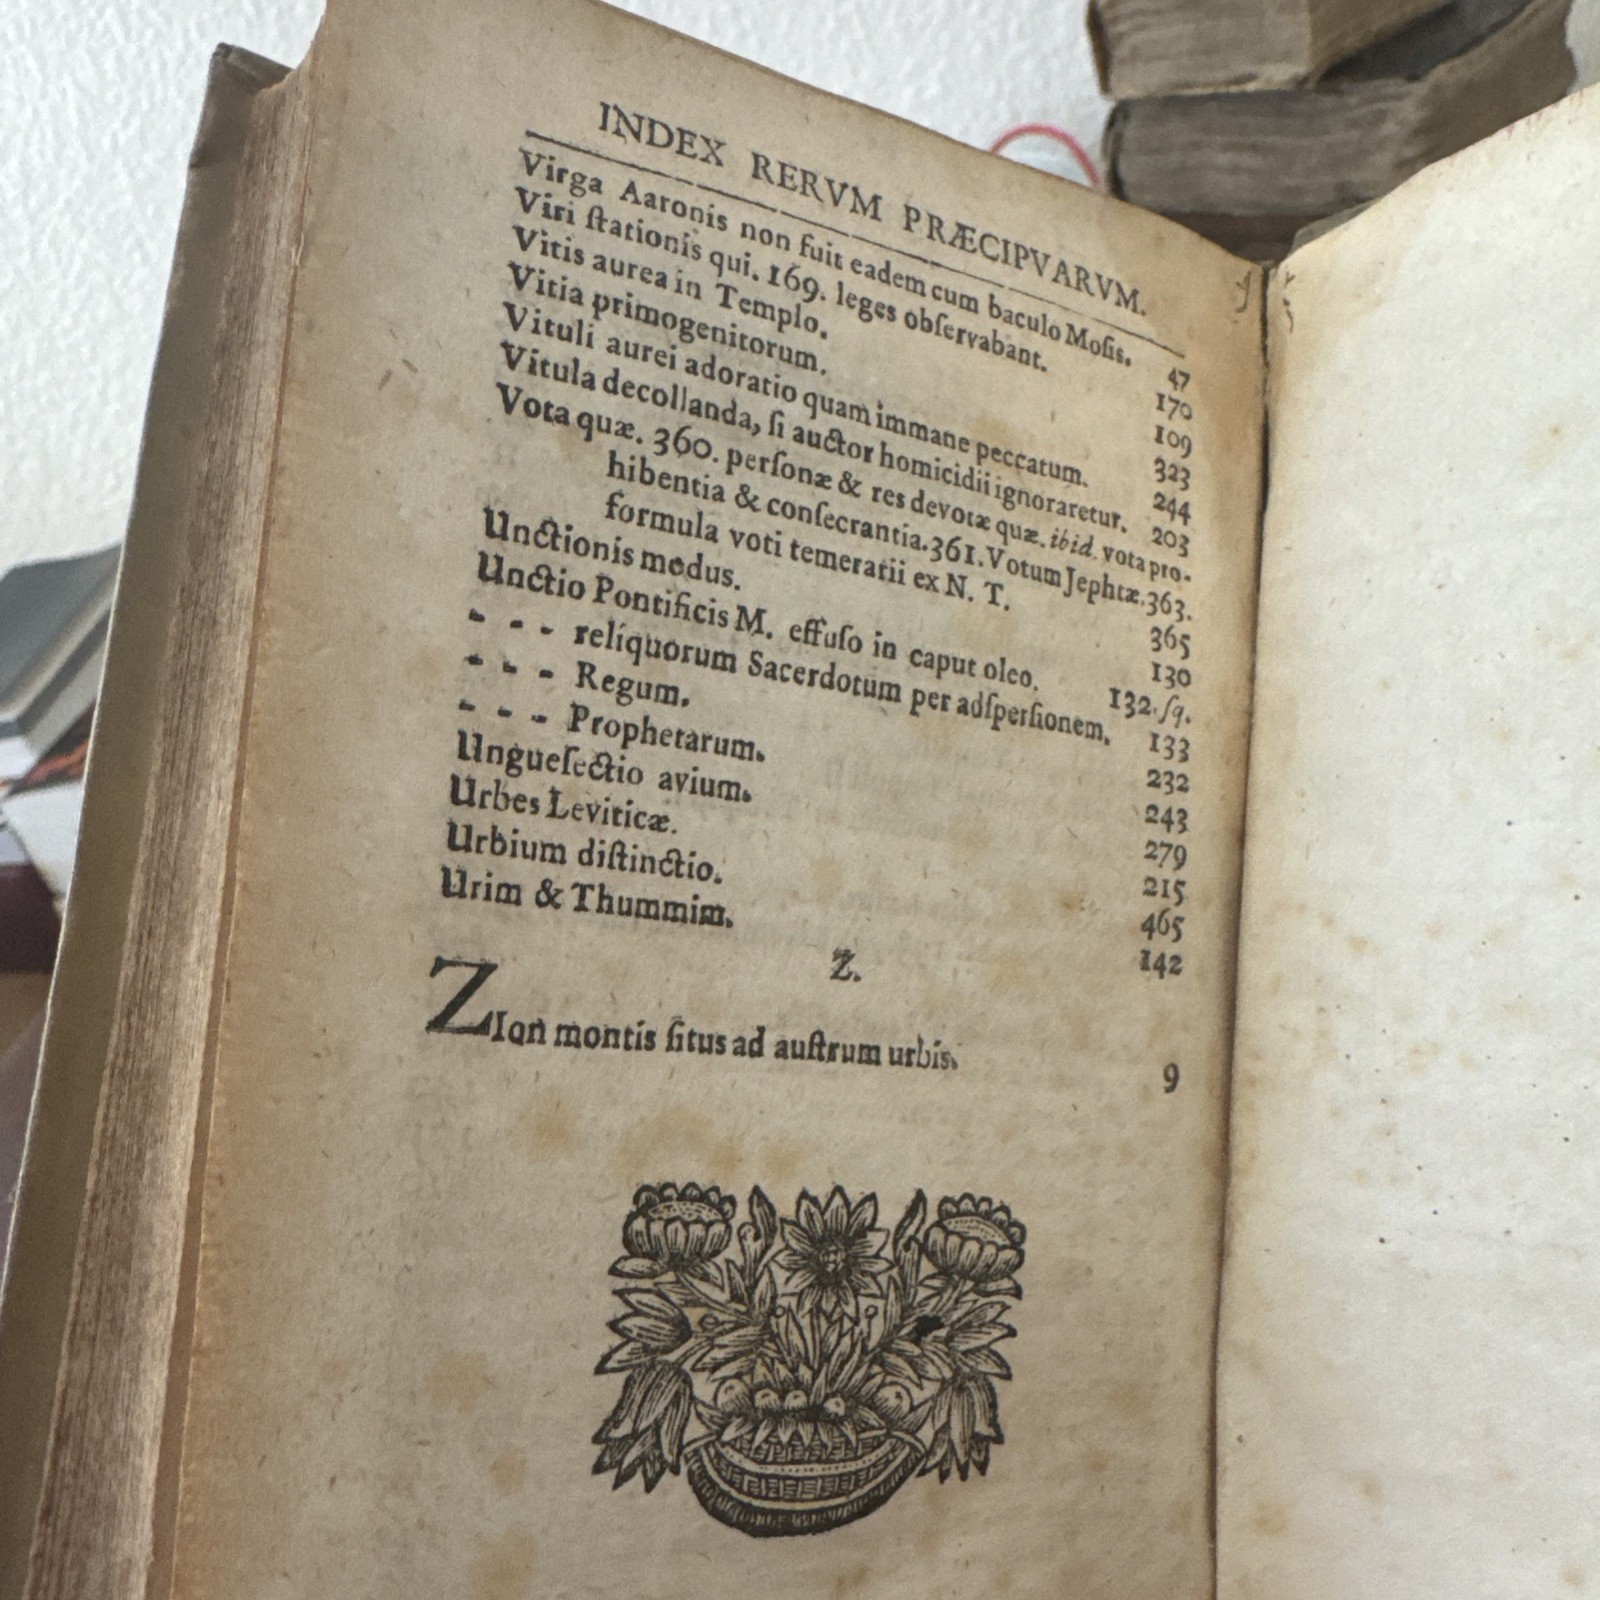 INDEX RERVM PRÆCIPVARVM.
Virga Aaronis non fuit eadem cum baculo Mosis. 47
Viri ſtationis qui. 169. leges obſervabant. 170
Vitis aurea in Templo. 109
Vitia primogenitorum. 323
Vituli aurei adoratio quam immane peccatum. 244
Vitula decollanda, ſi auctor homicidii ignoraretur. 203
Vota quæ. 360. perſonæ & res devotæ quæ. ibid. vota pro-
hibentia & conſecrantia. 361. Votum Jephtæ. 363.
formula voti temerarii ex N. T. 365
Unctionis modus. 130
Unctio Pontificis M. effuſo in caput oleo. 132. ſq.
- - - reliquorum Sacerdotum per adſperſionem. 133
- - - Regum. 232
- - - Prophetarum. 243
Ungueſectio avium. 279
Urbes Leviticæ. 215
Urbium diſtinctio. 465
Urim & Thummim. 142
Z.
ZIon montis ſitus ad auſtrum urbis. 9